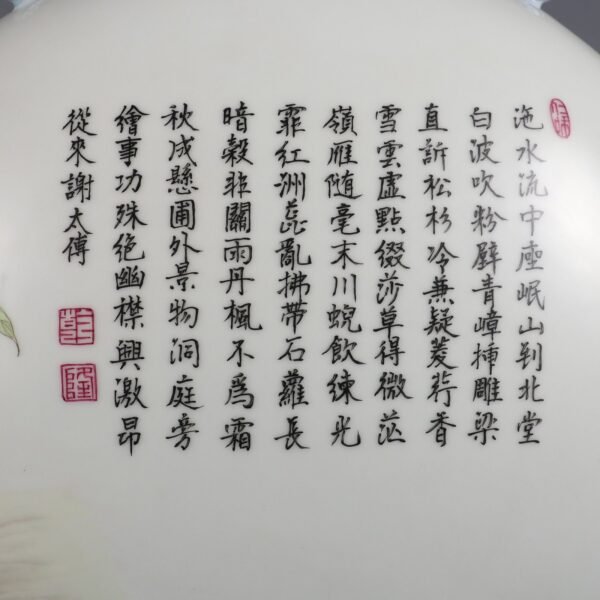 沲水流中座岷山到北堂
白波吹粉壁青嶂揷雕梁
直訴松杉冷兼疑菱荇香
雪雲虛點綴莎草得微茫
嶺雁随毫末川蜺飲練光
霏紅洲蕊亂拂帶石蘿長
暗穀非關雨丹楓不爲霜
秋成懸圃外景物洞庭旁
繪事功殊絶幽襟興激昂
從來謝太傅
乾
隆